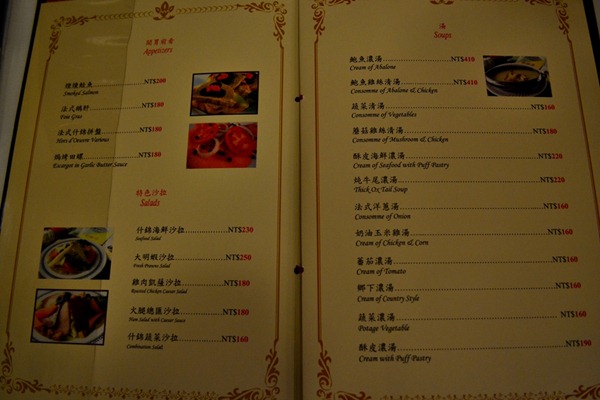 開胃前食
Appetizers
煙燻鮭魚 NT$200
Smoked Salmon
法式鵝肝 NT$180
Foie Gras
法式什錦拼盤 NT$180
Hors d'Oeuvre Various
焗烤田螺 NT$180
Escargot in Garlic Butter Sauce
特色沙拉
Salads
什錦海鮮沙拉 NT$230
Seafood Salad
大明蝦沙拉 NT$250
Fresh Prawns Salad
雞肉凱薩沙拉 NT$180
Roasted Chicken Caesar Salad
火腿總匯沙拉 NT$180
Ham Salad with Caesar Sauce
什錦蔬菜沙拉 NT$160
Combination Salad
湯
Soups
鮑魚濃湯 NT$410
Cream of Abalone
鮑魚雞絲清湯 NT$410
Consomme of Abalone & Chicken
蔬菜清湯 NT$160
Consomme of Vegetables
蘑菇雞絲清湯 NT$160
Consomme of Mushroom & Chicken
酥皮海鮮濃湯 NT$220
Cream of Seafood with Puff Pastry
燉牛尾濃湯 NT$220
Thick Ox Tail Soup
法式洋蔥湯 NT$160
Consomme of Onion
奶油玉米雞湯 NT$160
Cream of Chicken & Corn
蕃茄濃湯 NT$160
Cream of Tomato
鄉下濃湯 NT$160
Cream of Country Style
蔬菜濃湯 NT$160
Potage Vegetable
酥皮濃湯 NT$190
Cream with Puff Pastry